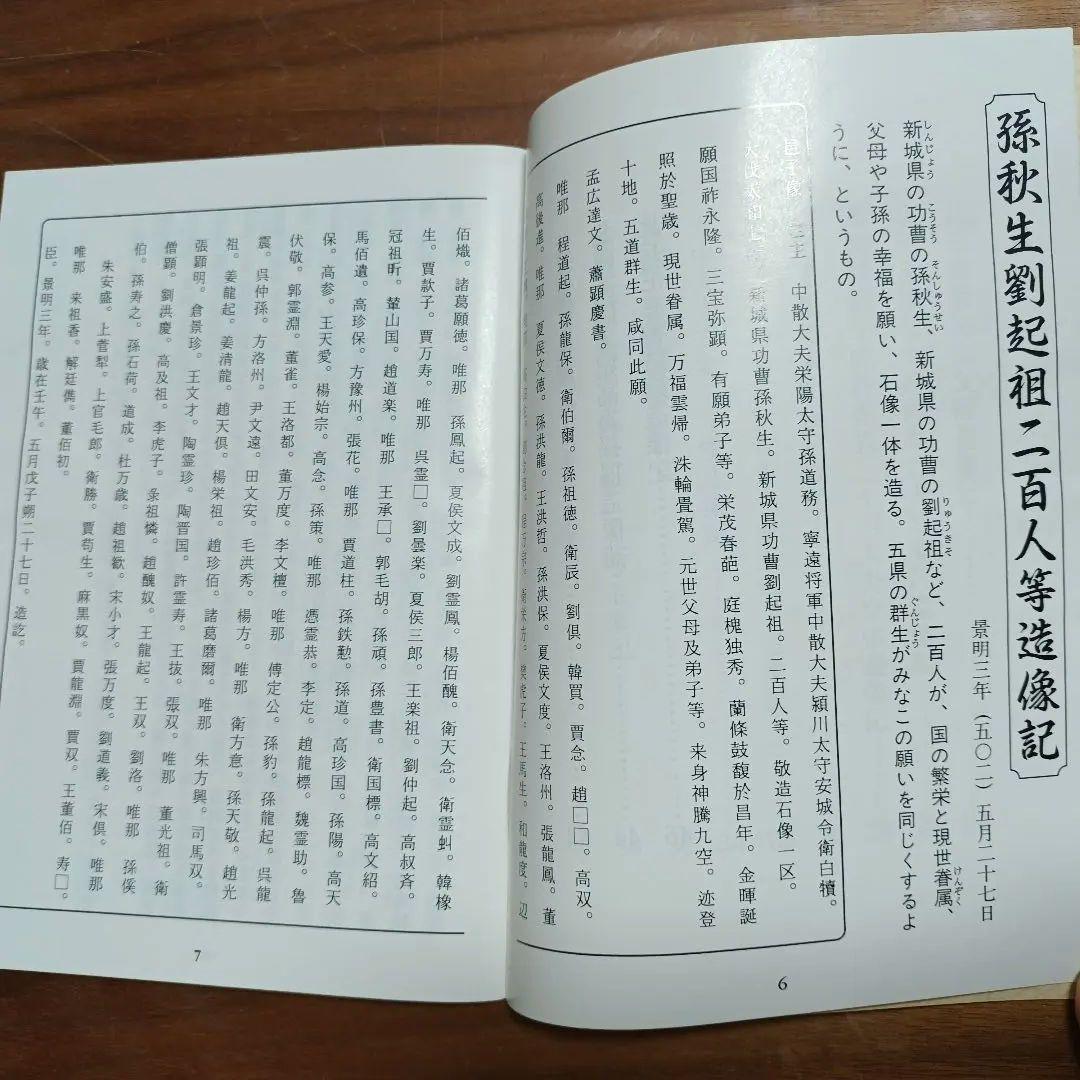 孫秋生劉起祖二百人等造像記
景明三年（五〇二）五月二十七日
新城県の功曹の孫秋生、新城県の功曹の劉起祖など、二百人が、国の繁栄と現世眷属、
しんじょう こうそう そんしゅうせい りゅうきそ けんぞく
父母や子孫の幸福を願い、石像一体を造る。五県の群生がみなこの願いを同じくするよ
ぐんじょう
うに、というもの。
中散大夫栄陽太守孫道務。寧遠将軍中散大夫潁川太守安城令衛白犢。
城県功曹孫秋生。新城県功曹劉起祖。二百人等。敬造石像一区。
願国祚永隆。三宝弥顕。有願弟子等。栄茂春葩。庭槐独秀。蘭條鼓馥於昌年。金暉誕
照於聖歳。現世眷属。万福雲帰。洙輪疊駕。元世父母及弟子等。来身神騰九空。迹登
十地。五道群生。咸同此願。
孟広達文。蕭顕慶書。
唯那 程道起。孫龍保。衛伯爾。孫祖徳。衛辰。劉俱。韓買。賈念。趙□□。高双。
高後進。唯那 夏侯文徳。孫洪龍。王洪哲。孫洪保。夏侯文度。王洛州。張龍鳳。董
虎子。王馬生。和龍度。辺
佰熾。諸葛願徳。唯那 孫鳳起。夏侯文成。劉霊鳳。楊佰醜。衛天念。衛霊虬。韓橡
生。賈歎子。賈万寿。唯那 呉霊□。劉曇楽。夏侯三郎。王楽祖。劉仲起。高叔斉。
冠祖昕。輦山国。趙道楽。唯那 王承□。郭毛胡。孫頑。孫豊書。衛国標。高文紹。
馬佰遺。高珍保。方豫州。張花。唯那 賈道柱。孫鉄懃。孫道。高珍国。孫陽。高天
保。高参。王天愛。楊始宗。高念。孫策。唯那 憑霊恭。李定。趙龍標。魏霊助。魯
伏敬。郭霊淵。董雀。王洛都。董万度。李文檀。唯那 傅定公。孫豹。孫龍起。呉龍
震。呉仲孫。方洛州。尹文遠。田文安。毛洪秀。楊方。唯那 衛方意。孫天敬。趙光
祖。姜龍起。姜清龍。趙天俱。楊栄祖。趙珍佰。諸葛磨爾。唯那 朱方興。司馬双。
張顕明。倉景珍。王文才。陶霊珍。陶晋国。許霊寿。王抜。張双。唯那 董光祖。衛
僧顕。劉洪慶。高及祖。李虎子。彖祖憐。趙醜奴。王龍起。王双。劉洛。唯那 孫傒
伯。孫寿之。孫石荷。道成。杜万歳。趙祖歓。宋小才。張万度。劉道義。宋俱。唯那
朱安盛。上菅犁。上官毛郎。衛勝。賈苟生。麻黒奴。賈龍淵。賈双。王董佰。寿□。
唯那 来祖香。解廷儁。董佰初。
臣。景明三年。歳在壬午。五月戊子朔二十七日。造訖。
6
7